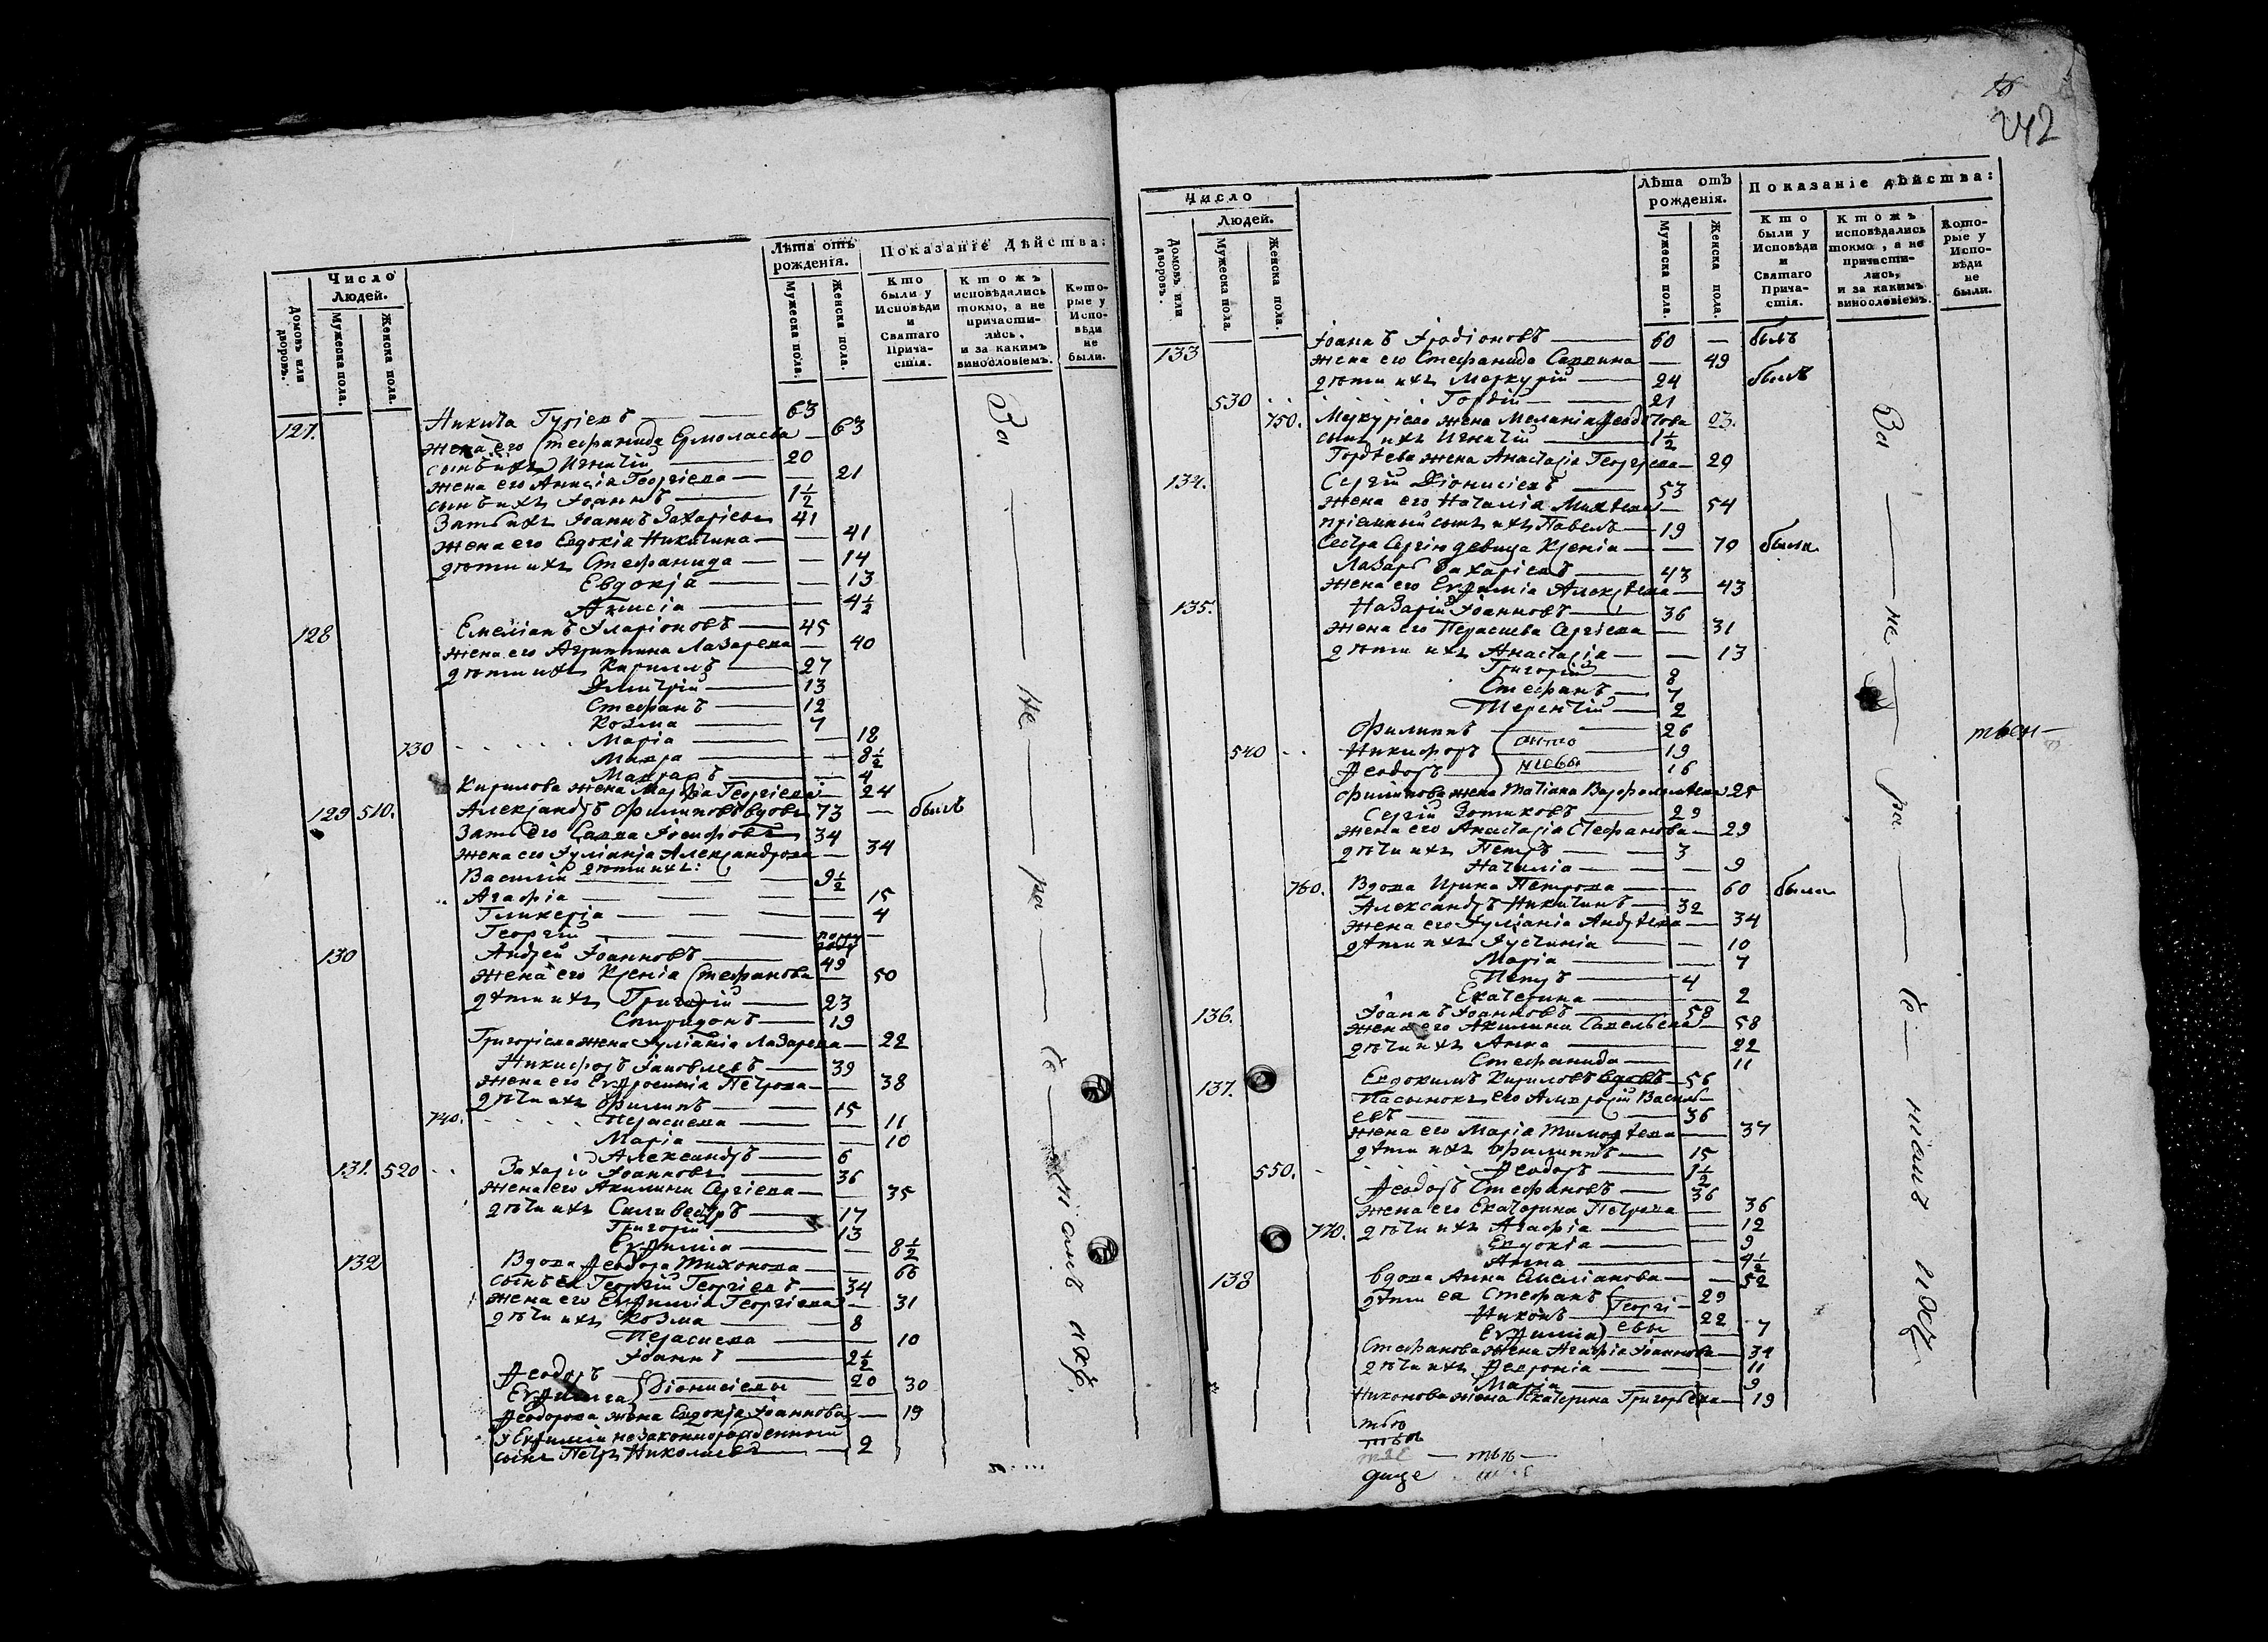 Число
Людей.
Домовъ или дворовъ.
Мужеска пола.
Женска пола.
Лѣта отъ рожденія.
Мужеска пола.
Женска пола.
Показаніе Дѣйства:
Кто были у Исповѣди и Святаго Причастія.
Ктожъ исповѣдались токмо, а не причастились, и за какимъ винословіемъ.
Которые у Исповѣди не были.
127. Никита Гуріевъ 63
жена его Стефанида Ермолаева 63
сынъ ихъ Игнатій 20
жена его Анисія Георгіева 21
сынъ ихъ Іоаннъ 1½
Зять ихъ Іоаннъ Захаріевъ 41
жена его Евдокія Никитина 41
дѣти ихъ Стефанида 14
Евдокія 13
Анисія 4½
128 Емеліанъ Иларіоновъ 45
жена его Агриппина Лазарева 40
дѣти ихъ Кириллъ 27
Димитрій 13
Стефанъ 12
Козма 7
730 Марія 18
Мавра 8½
4
Кирилова жена Марфа Георгіева 24
129 510. Александръ Филиповъ вдовъ 73 — былъ
Зять его Савва Іосифовъ 34
жена его Іуліанія Александрова 34
дѣти ихъ:
Василій 9½
Агафія 15
Гликерія 4
Георгій полу году
130 Андрей Іоанновъ 49
жена его Ксенія Стефанова 50
дѣти ихъ Григорій 23
Спиридонъ 19
Григоріева жена Іуліанія Лазарева 22
Никифоръ Іаковлевъ 39
жена его Евфросинія Петрова 38
дѣти ихъ Филиппъ 15
740. Параскева 11
Марія 10
Александръ 6
131. 520 Захарій Іоанновъ 36
жена его Акилина Сергіева 35
дѣти ихъ Силивестръ 17
Григорій 13
Евфимія 8½
132 Вдова Ѳеодора Тихонова 66
сынъ ея Георгій Георгіевъ 34
жена его Евфимія Георгіева 31
дѣти ихъ Козма 8
Параскева 10
Іоаннъ 2½
Ѳеодоръ 20
Діонисіевы 30
Ѳеодорова жена Евдокія Іоаннова 19
У Евфиміи незаконнорожденный
сынъ Петръ Николаевъ 2
За — не — ра — се — ніемъ ихъ.
242
Число
Людей.
Домовъ или дворовъ.
Мужеска пола.
Женска пола.
Лѣта отъ рожденія.
Мужеска пола.
Женска пола.
Показаніе дѣйства:
Кто были у Исповѣди и Святаго Причастія.
Ктожъ исповѣдались токмо, а не причастились, и за какимъ винословіемъ.
Которые у Исповѣди не были.
133 Іоаннъ Іродіоновъ 60 — былъ
жена его Стефанида Саввина — 49
дѣти ихъ Меркурій 24 былъ
530 Гордій 21
750. Меркуріева жена Меланія Ѳеодотова 23.
сынъ ихъ Игнатій 1½
Гордѣева жена Анастасія Георгіева 20
134. Сергій Діонисіевъ 53
жена его Наталія Михѣева 54
пріемный сынъ ихъ Павелъ 19
Сестра Сергію девица Ксенія — 70 была
Лазарь Захаріевъ 43
жена его Евфимія Алексѣева 43
135. Назарій Іоанновъ 36
жена его Параскева Сергіева — 31
дѣти ихъ Анастасія — 13
Григорій 8
Стефанъ 7
Терентій 2
Филиппъ 26
540 Никифоръ 19
Ѳеодоръ 16
Филипова жена Татіана Варфоломѣева 25
Сергій Зотиковъ 29
жена его Анастасія Стефанова 29
дѣти ихъ Петръ 3
Наталія 9
760. Вдова Ирина Петрова 60 была
Александръ Никитинъ 32
жена его Іуліанія Андрѣева 34
дѣти ихъ Іустинія 10
Марія 7
Петръ 4
Екатерина 2
136. Іоаннъ Іоанновъ 58
жена его Акилина Савельева 58
дѣти ихъ Анна 22
Стефанида 11
137. Евдокимъ Кириловъ вдовъ 56
Пасынокъ его Амвросій Василь-
евъ 36
жена его Марія Тимоѳѣева 37
дѣти ихъ Филиппъ 15
550. Ѳеодоръ 1½
Ѳеодоръ Стефановъ 36
жена его Екатерина Петрова 36
770. дѣти ихъ Агафія 12
Евдокія 9
Анна 4½
138 вдова Анна Емеліанова 52
дѣти ея Стефанъ 29
Никонъ 22
Евфимія 7
Георгі-
евы
Стефанова жена Агафія Іоаннова 34
дѣти ихъ Ѳевронія 11
Марія 9
Никонова жена Екатерина Григорьева 19
За — не — ра — се — ніемъ ихъ.